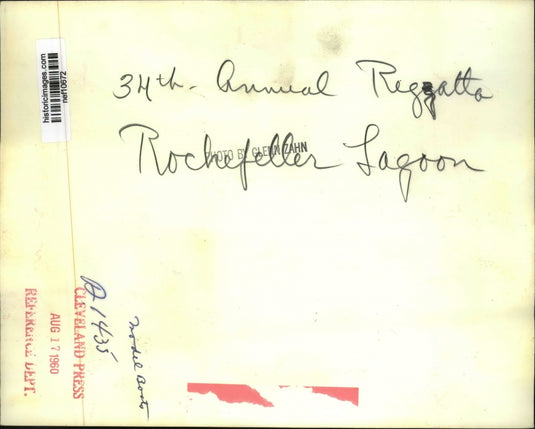 34th. Annual Regatta
Rockefeller Lagoon
PHOTO BY GLENN ZAHN
historicimages.com
nef10672
A1435
Model Boats
CLEVELAND PRESS
AUG 17 1960
REFERENCE DEPT.